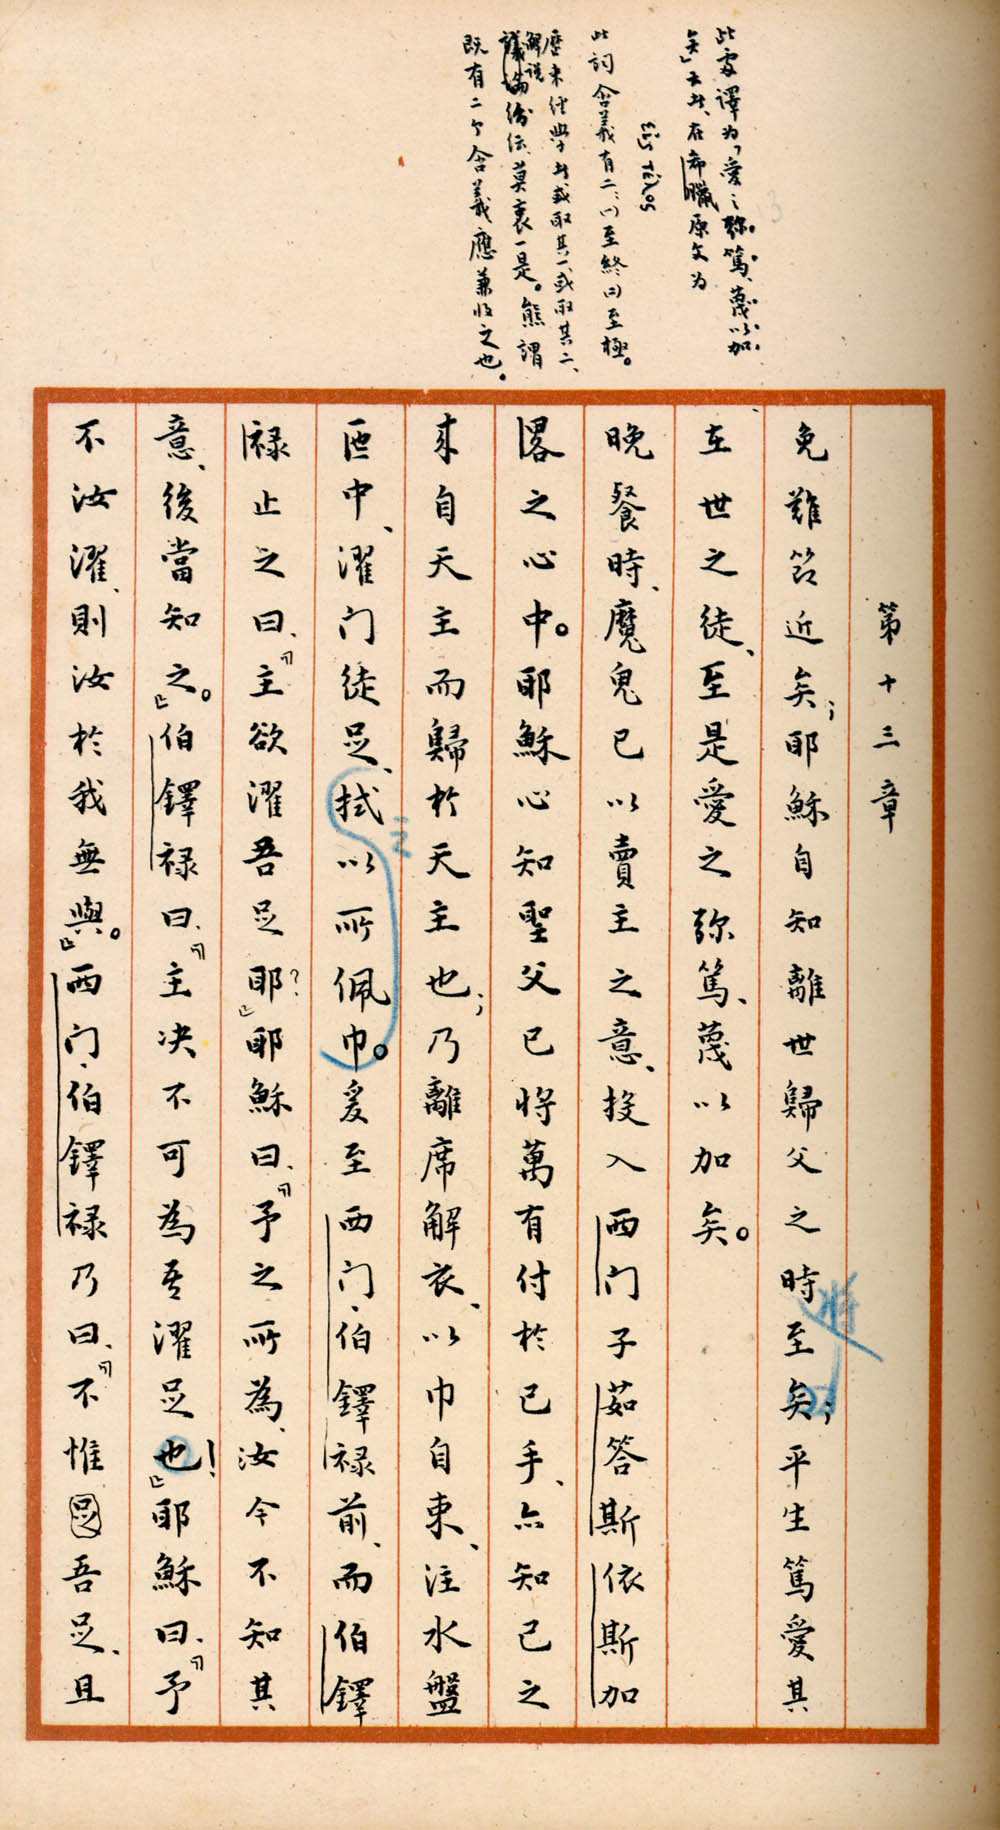 此處譯為「愛之弥篤、蔑以加
矣」云者、在希臘原文為
εἰς τέλος
此詞含義有二：(1)至終(2)至極。
歷來經學者或取其一、或取其二、
解说
紛紜莫衷一是。熊謂
既有二个含義應兼收之也。
第十三章
免難節近矣；耶穌自知離世歸父之時至矣；平生篤愛其
将
在世之徒、至是愛之弥篤、蔑以加矣。
晚餐時、魔鬼已以賣主之意、投入西门子茹答斯依斯加
畧之心中。耶穌心知聖父已将萬有付於己手、亦知己之
来自天主而歸於天主也；乃離席解衣、以巾自束、注水盤
匜中、濯门徒足、拭以所佩巾。爰至西门·伯鐸禄前、而伯鐸
之
禄止之曰、「主欲濯吾足耶？」耶穌曰、「予之所為、汝今不知其
意、後當知之。」伯鐸禄曰、「主决不可為吾濯足也！」耶穌曰、「予
不汝濯、則汝於我無與。」西门·伯鐸禄乃曰、「不惟吾足、且